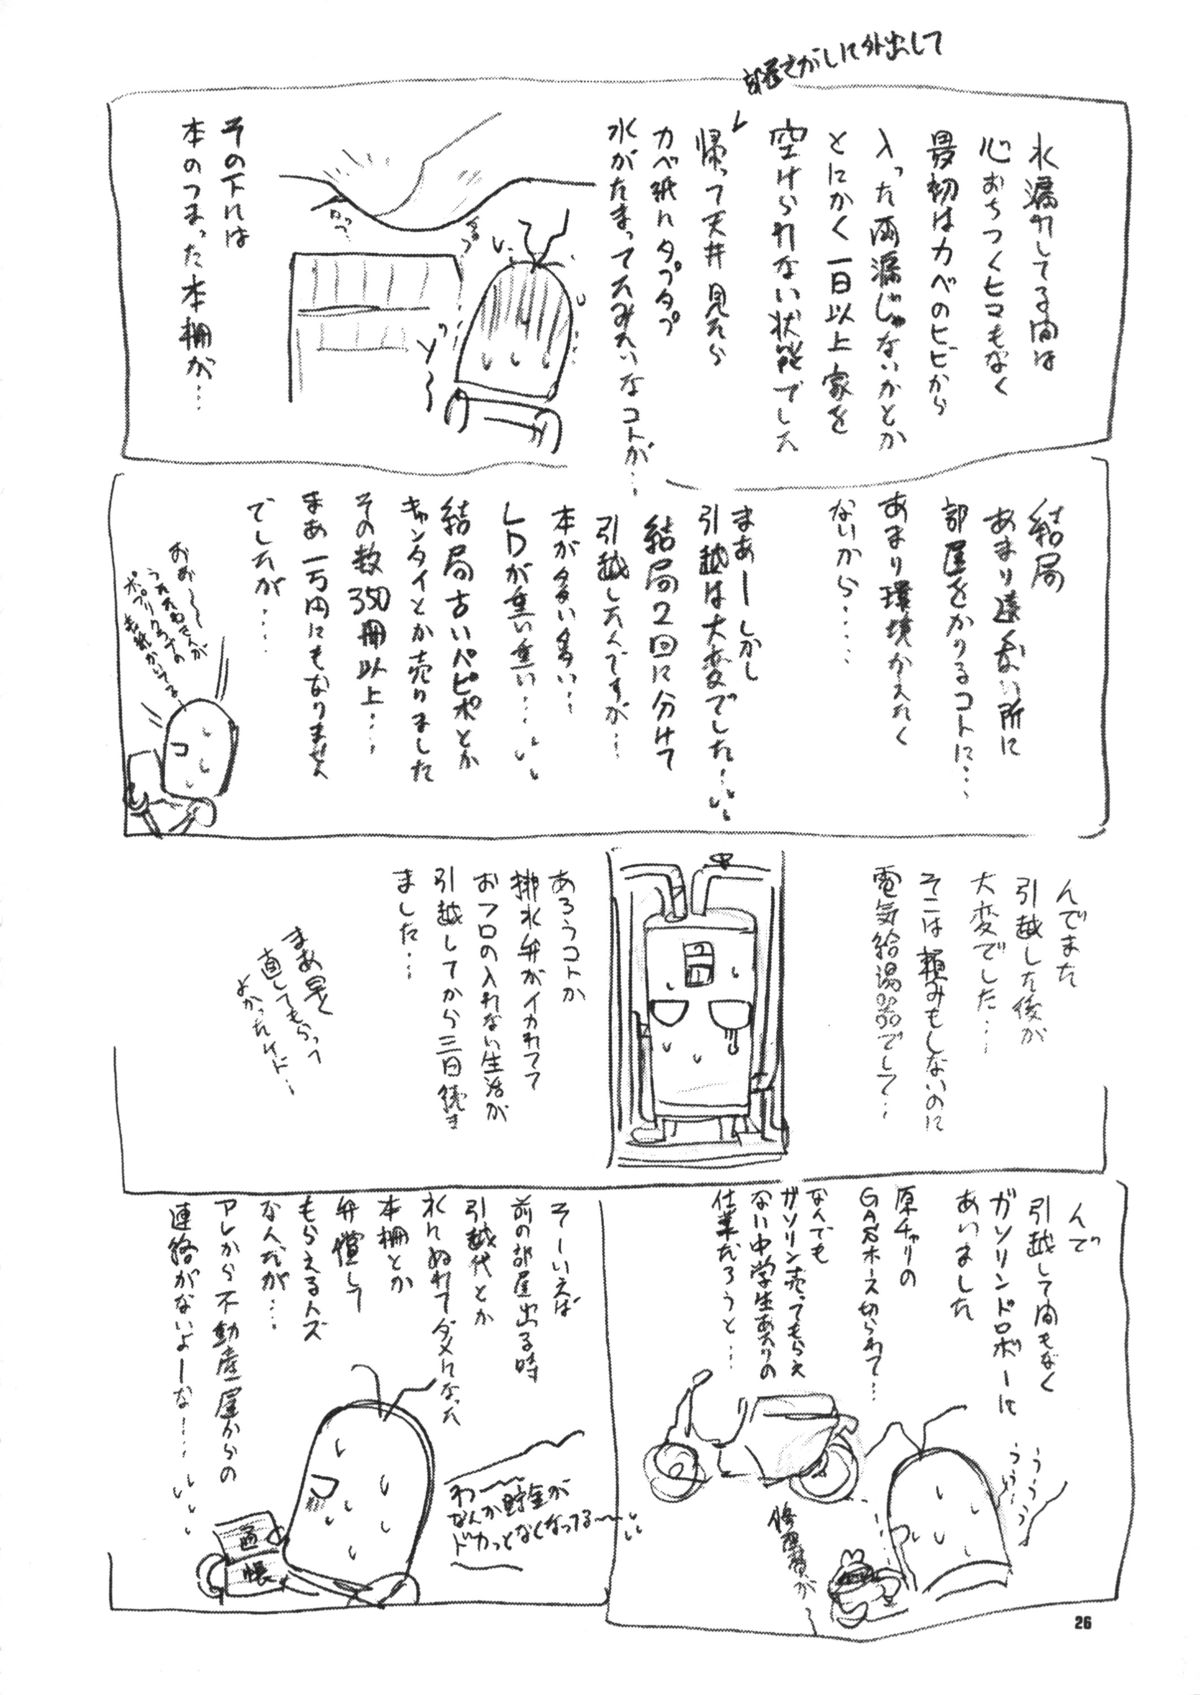 部屋さがしに外出して
水漏れしてる間は
心おちつくヒマもなく
最初はカベのヒビから
入った雨漏じゃないかとか
とにかく一日以上家を
空けられない状態でした
帰って天井見たら
カベ紙にタプタプ
水がたまってたみたいなコトが…
その下には
本のつまった本棚が…
結局
あまり遠くない所に
部屋をかりるコトに…
あまり環境かえたく
ないから……
まあーしかし
引越は大変でした…
結局2回に分けて
引越したんですが…
本が多い多い…
LDが重い重い…
結局古いパピポとか
キャンタイとか売りました
その数350冊以上…
まあ一万円にもなりません
でしたが…
おお〜〜
うたたねさんが
ポプリクラブの
表紙かいてる〜
んでまた
引越した後が
大変でした…
そこは頼みもしないのに
電気給湯器でして…
あろうコトか
排水弁がイカれてて
おフロの入れない生活が
引越してから三日続き
ました…
まあ早く
直してもらって
よかったけど…
んで
引越して間もなく
ガソリンドロボーに
あいました
原チャリの
GASホース切られて…
なんでも
ガソリン売ってもらえ
ない中学生あたりの
仕業だろうと…
うううう〜
うううう〜
修理費が〜
そーいえば
前の部屋出る時
引越代とか
水にぬれてダメになった
本棚とか
弁償して
もらえるハズ
なんだが…
アレから不動産屋からの
連絡がないよーな…
わ〜〜
なんか貯金が
ドカっとなくなってる〜
通帳
26